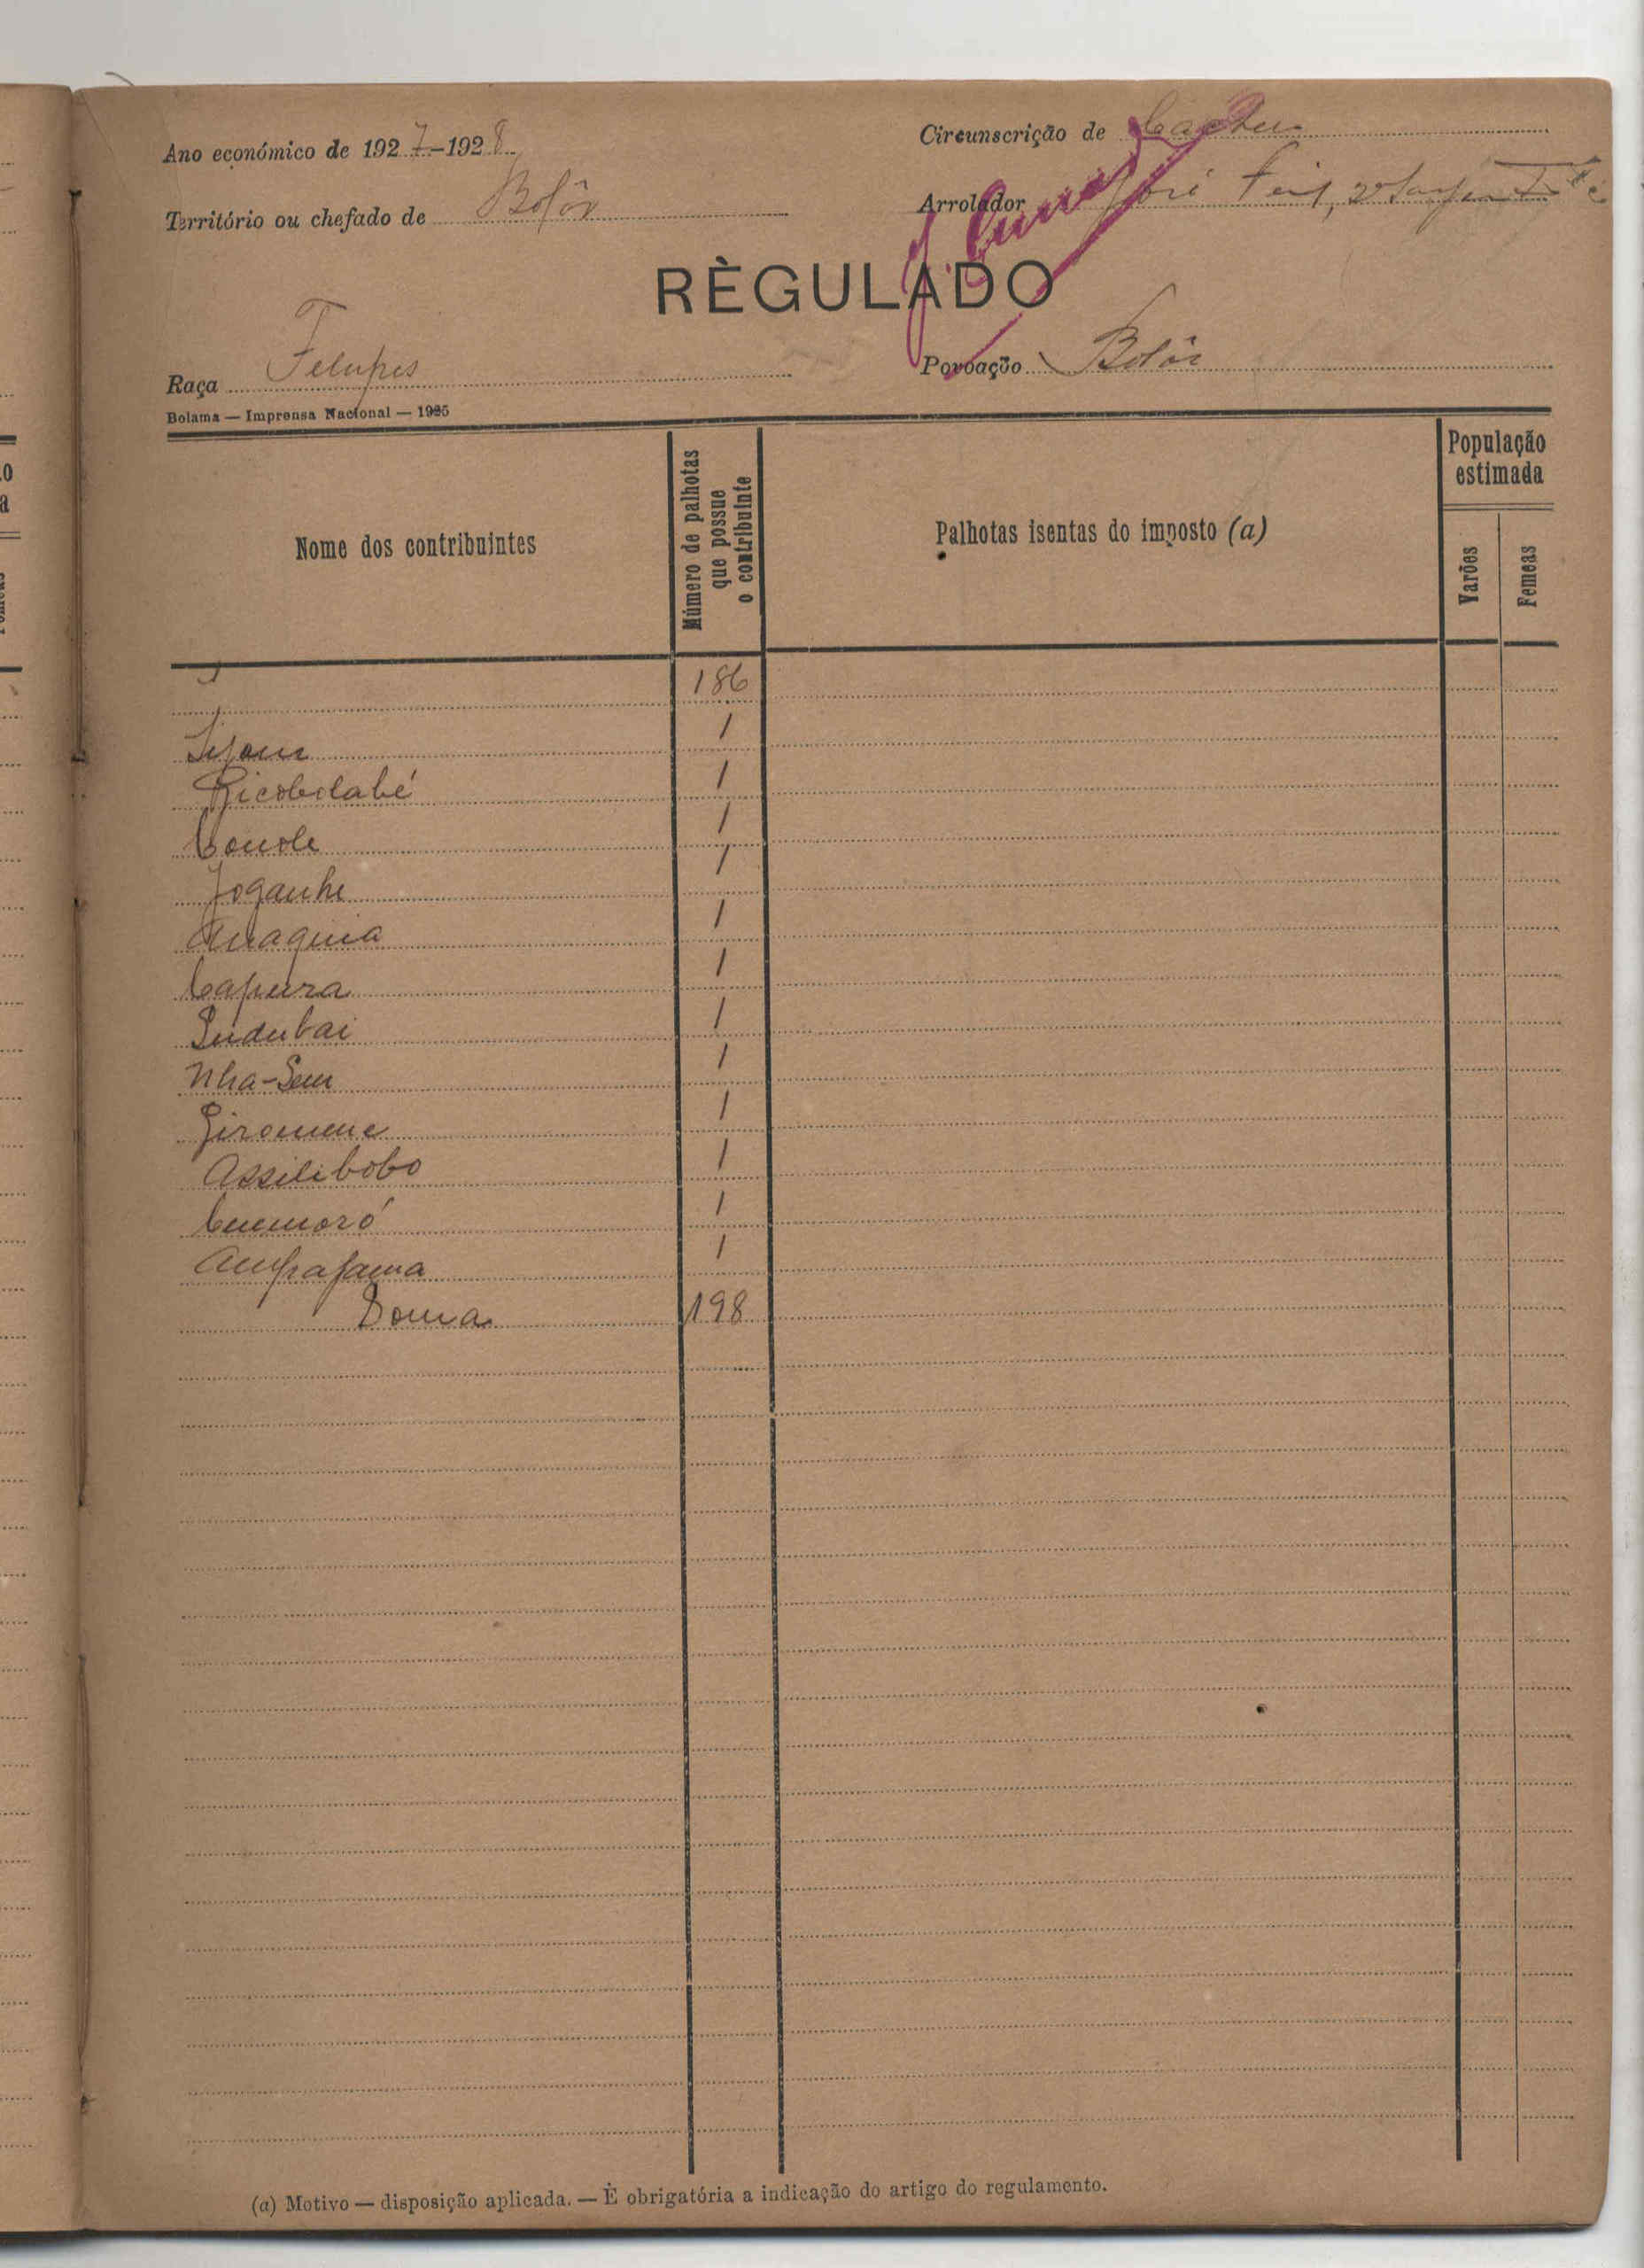 Ano económico de 1927-1928
Circunscrição de Cacheu
Território ou chefado de Bolôr
Arrolador José
RÈGULADO
Raça Felupes
Povoação Bolôr
Bolama — Imprensa Nacional — 1925
Nome dos contribuintes
Número de palhotas
que possue
o contribuinte
Palhotas isentas do imposto (a)
População
estimada
Varões
Femeas
186
1
Ricobolabé 1
1
Joganhe 1
1
Capeira 1
Indubai 1
Nha-Sem 1
Giromene 1
Assilibobo 1
1
Ampafama 1
Soma 198
(a) Motivo — disposição aplicada. — É obrigatória a indicação do artigo do regulamento.